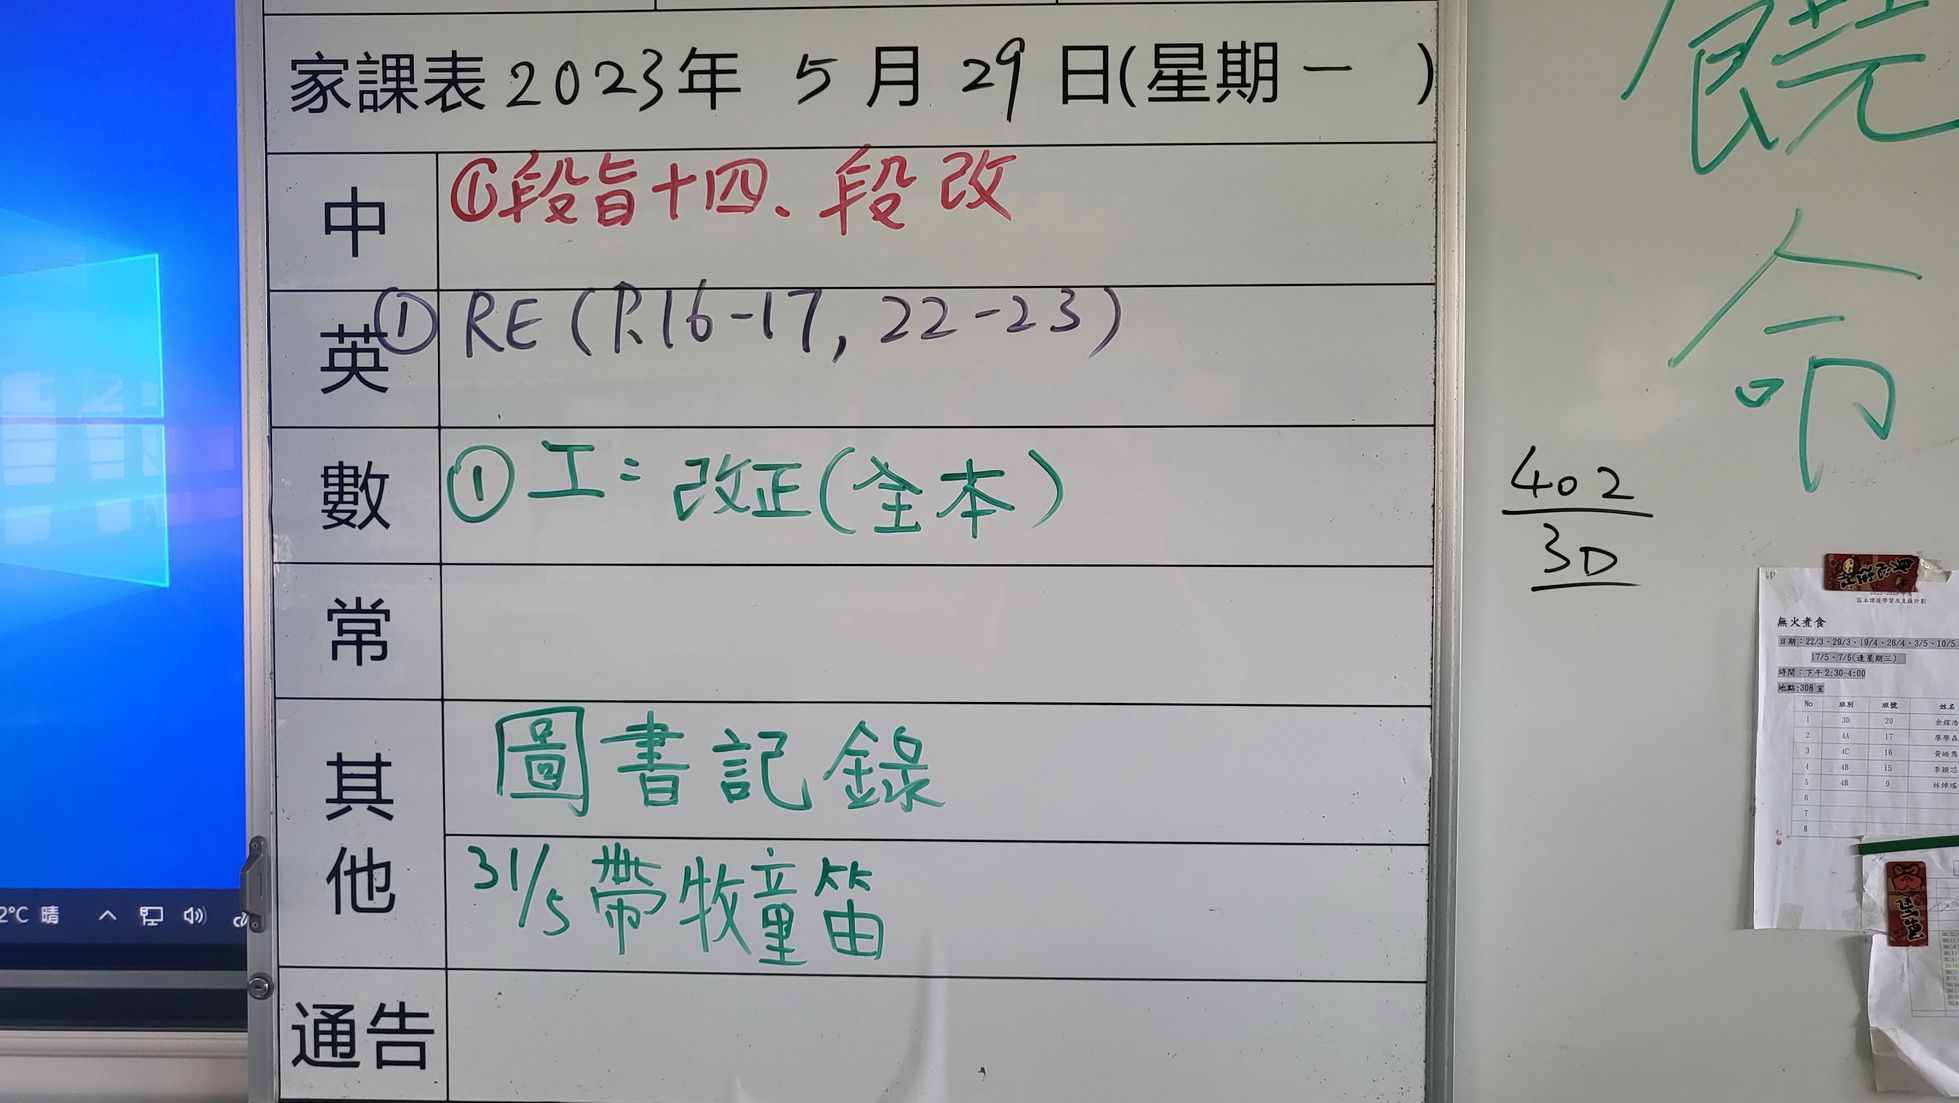 家課表2023年 5月29日(星期一 )
中 ①段旨十四、段改
英 ①RE(P.16-17, 22-23)
數 ①工= 改正(全本)
常
其他 圖書記錄
31/5帶牧童笛
通告
2°C 晴
饒
命
402
3D
3D
基本課後學習及支援計劃
無火煮食
日期:22/3、29/3、19/4、26/4、3/5、10/5
17/5、7/6(逢星期三)
時間:下午2:30-4:00
地點:308室
No 班別 班號 姓名
1 3D 20
2 4A 17
3 4C 16
4 4B 15
5 4B 9
6
7
8